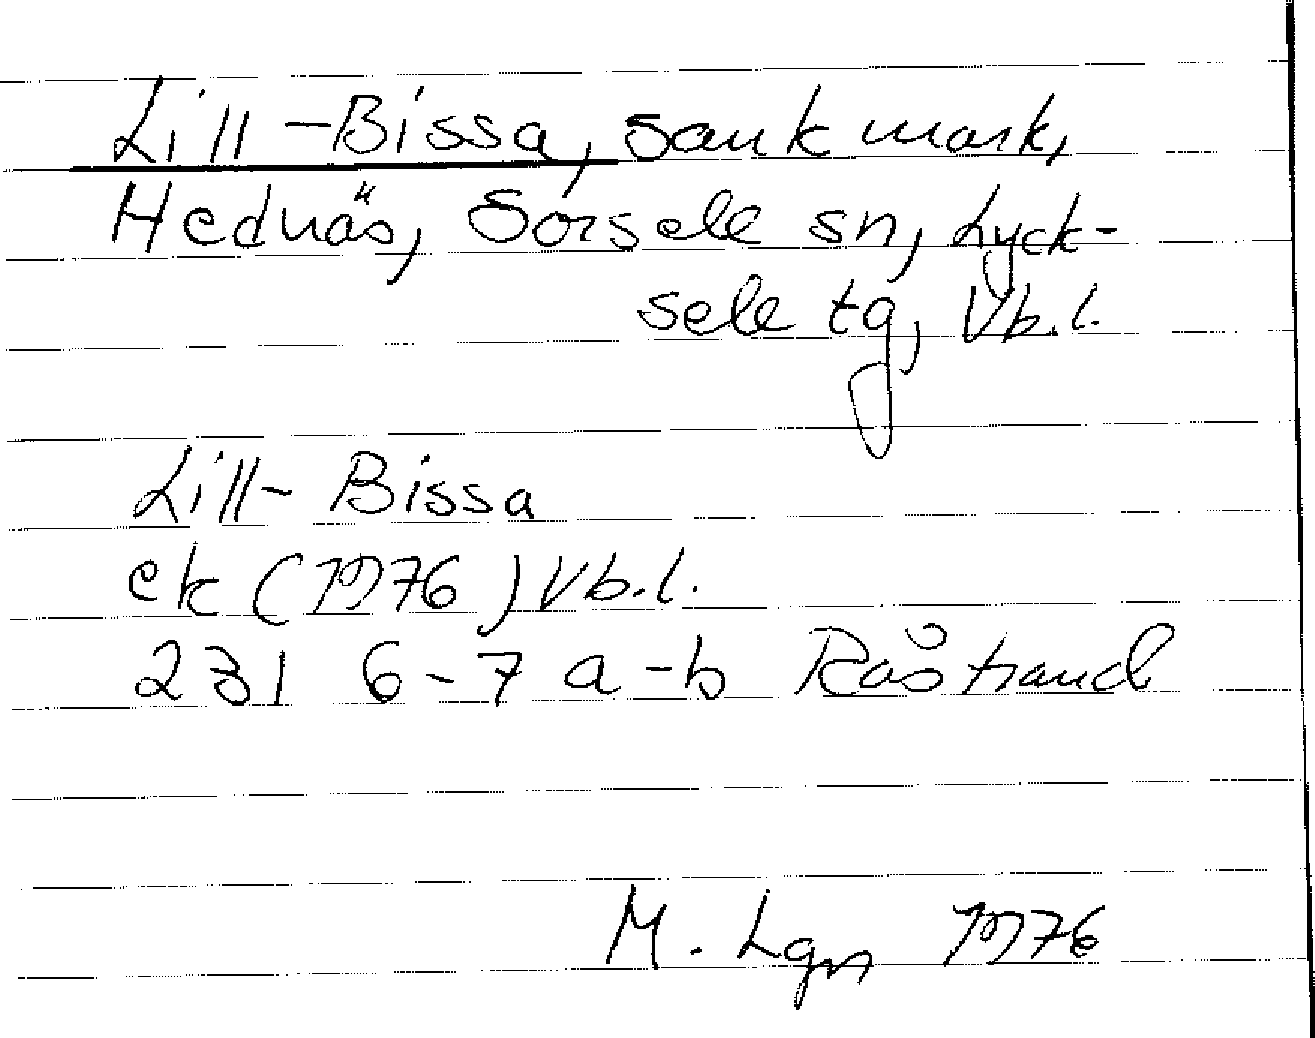 Lill-Bissa, sank mark,
Hednäs, Sorsele sn, Lyck-
sele tg, Vb.l.
Lill-Bissa
ek (1976) Vb.l.
23I 6-7 a-b Råstrand
M. Lgn 1976